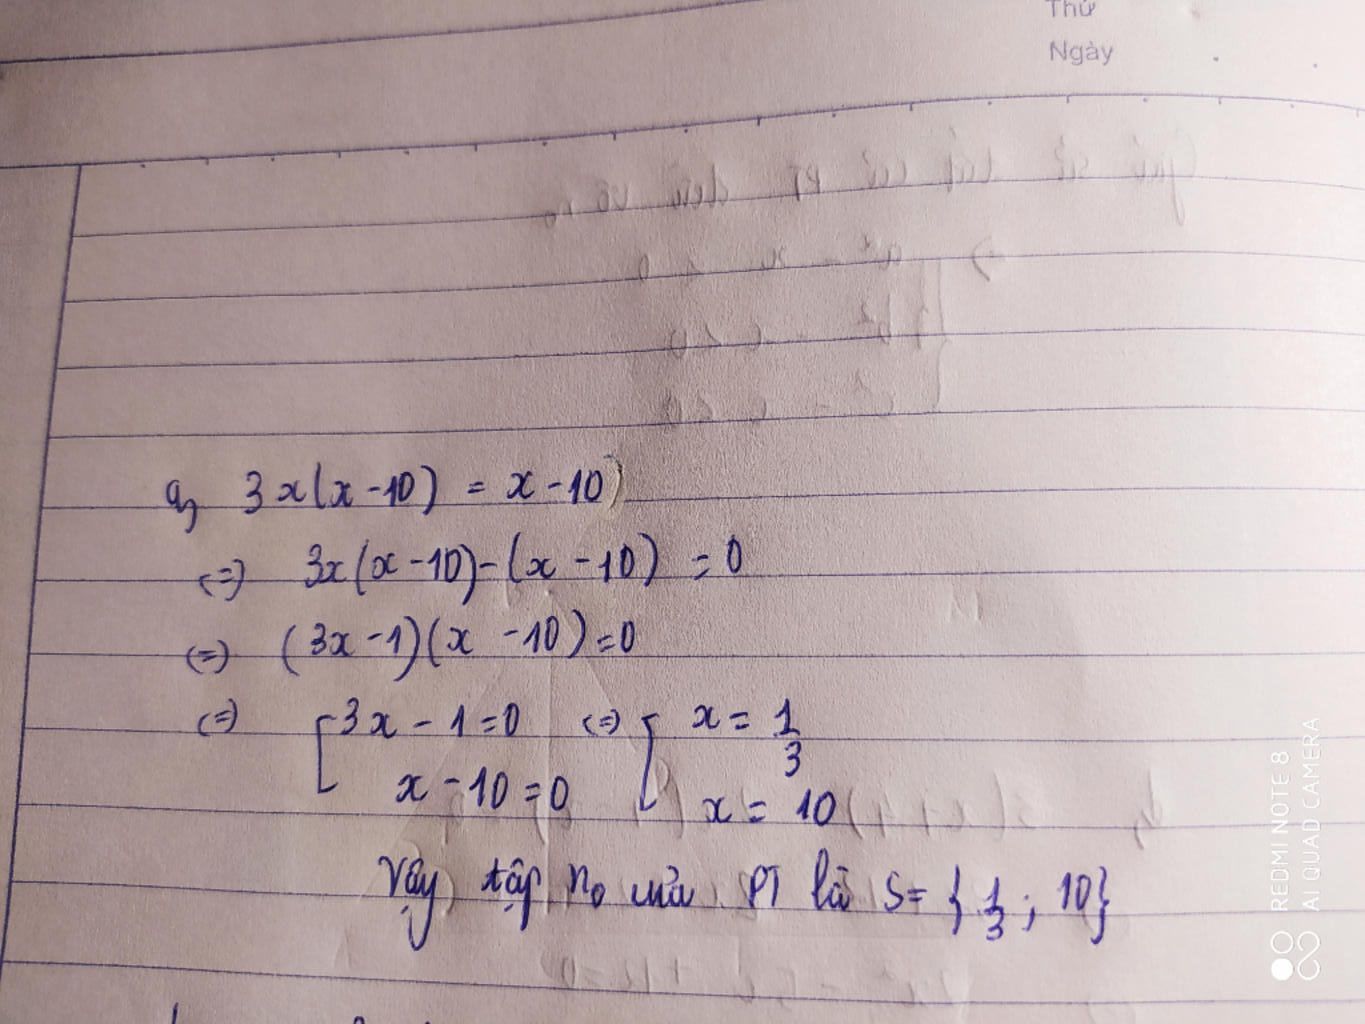 Thứ
Ngày
a, 3x(x-10) = x-10
<=> 3x(x-10)-(x-10) = 0
<=> (3x-1)(x-10)=0
<=> [3x-1=0 <=> [x = 1/3
x-10=0 x = 10
Vậy tập n₀ của PT là S= {1/3; 10}
REDMI NOTE 8
AI QUAD CAMERA